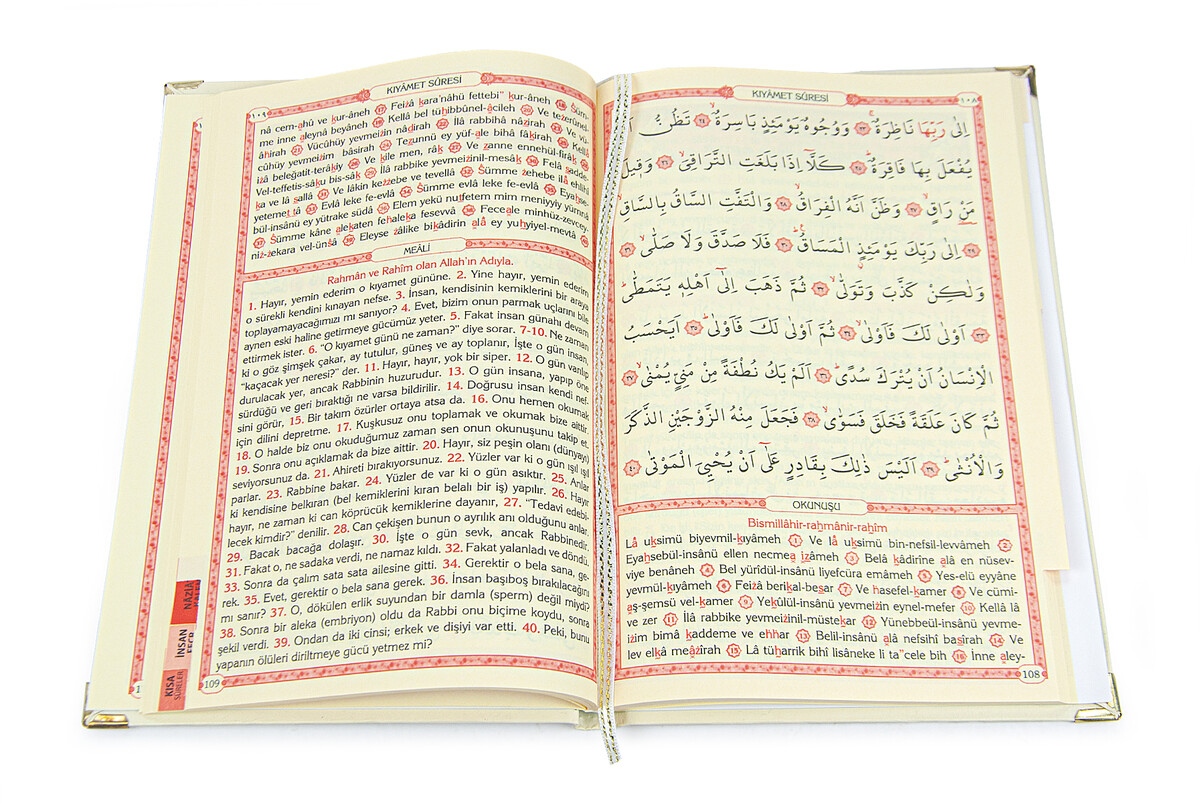 KIYÂMET SÛRESİ
١٠٨
اِلٰى رَبِّهَا نَاظِرَةٌۚ ﴿٢٣﴾ وَوُجُوهٌ يَوْمَئِذٍ بَاسِرَةٌۙ ﴿٢٤﴾ تَظُنُّ
يُفْعَلَ بِهَا فَاقِرَةٌۜ ﴿٢٥﴾ كَلَّٓا اِذَا بَلَغَتِ التَّرَاقِيَۙ ﴿٢٦﴾ وَقِيلَ
مَنْ رَاقٍۙ ﴿٢٧﴾ وَظَنَّ اَنَّهُ الْفِرَاقُۙ ﴿٢٨﴾ وَالْتَفَّتِ السَّاقُ بِالسَّاقِۙ
﴿٢٩﴾ اِلٰى رَبِّكَ يَوْمَئِذٍ الْمَسَاقُۜ ﴿٣٠﴾ فَلَا صَدَّقَ وَلَا صَلّٰىۙ ﴿٣١﴾
وَلٰكِنْ كَذَّبَ وَتَوَلّٰىۙ ﴿٣٢﴾ ثُمَّ ذَهَبَ اِلٰٓى اَهْلِهٖ يَتَمَطّٰىۜ
﴿٣٣﴾ اَوْلٰى لَكَ فَاَوْلٰىۙ ﴿٣٤﴾ ثُمَّ اَوْلٰى لَكَ فَاَوْلٰىۜ ﴿٣٥﴾ اَيَحْسَبُ
الْاِنْسَانُ اَنْ يُتْرَكَ سُدًىۜ ﴿٣٦﴾ اَلَمْ يَكُ نُطْفَةً مِنْ مَنِيٍّ يُمْنٰىۙ ﴿٣٧﴾
ثُمَّ كَانَ عَلَقَةً فَخَلَقَ فَسَوّٰىۙ ﴿٣٨﴾ فَجَعَلَ مِنْهُ الزَّوْجَيْنِ الذَّكَرَ
وَالْاُنْثٰىۜ ﴿٣٩﴾ اَلَيْسَ ذٰلِكَ بِقَادِرٍ عَلٰٓى اَنْ يُحْيِيَ الْمَوْتٰى ﴿٤٠﴾
OKUNUŞU
Bismillâhir-rahmânir-rahîm
Lâ uksimü biyevmil-kıyâmeh (1) Ve lâ uksimü bin-nefsil-levvâmeh (2)
Eyahsebül-insânü ellen necmea izâmeh (3) Belâ kâdirîne alâ en nüsev-
viye benâneh (4) Bel yürîdül-insânü liyefcüra emâmeh (5) Yes-elü eyyâne
yevmül-kıyâmeh (6) Feizâ berikal-besar (7) Ve hasefel-kamer (8) Ve cümi-
aş-şemsü vel-kamer (9) Yekûlül-insânü yevmeizin eynel-mefer (10) Kellâ lâ
ve zer (11) İlâ rabbike yevmeizinil-müstekar (12) Yünebbeül-insânü yevme-
izim bimâ kaddeme ve ehhar (13) Belil-insânü alâ nefsihî basîrah (14) Ve
lev elkâ meâzîrah (15) Lâ tüharrik bihî lisâneke li ta"cele bih (16) İnne aley-
108
KIYÂMET SÛRESİ
١٠٩
nâ cem-ahû ve kur-âneh (17) Feizâ kara'nâhü fettebi" kur-âneh (18) Süm-
me inne aleynâ beyâneh (19) Kellâ bel tühibbûnel-âcileh (20) Ve tezerûnel-
âhirah (21) Vücûhüy yevmeizin nâdirah (22) İlâ rabbihâ nâzirah (23) Ve vü-
cûhüy yevmeizim bâsirah (24) Tezunnü ey yüf-ale bihâ fâkirah (25) Kellâ
izâ beleğatit-terâkiy (26) Ve kîle men, râk (27) Ve zanne ennehül-firâk (28)
Vel-teffetis-sâku bis-sâk (29) İlâ rabbike yevmeizinil-mesâk (30) Felâ sadde-
ka ve lâ sallâ (31) Ve lâkin kezzebe ve tevellâ (32) Sümme zehebe ilâ ehlihî
yetemettâ (33) Evlâ leke fe-evlâ (34) Sümme evlâ leke fe-evlâ (35) Eyahse-
bül-insânü ey yütrake südâ (36) Elem yekü nutfetem mim meniyyiy yümnâ
(37) Sümme kâne alekaten fehaleka fesevvâ (38) Feceale minhüz-zevcey-
niz-zekara vel-ünsâ (39) Eleyse zâlike bikâdirin alâ ey yuhyiyel-mevtâ (40)
MEÂLİ
Rahmân ve Rahîm olan Allah'ın Adıyla.
1. Hayır, yemin ederim o kıyamet gününe. 2. Yine hayır, yemin ederim
o sürekli kendini kınayan nefse. 3. İnsan, kendisinin kemiklerini bir araya
toplayamayacağımızı mı sanıyor? 4. Evet, bizim onun parmak uçlarını bile
aynen eski haline getirmeye gücümüz yeter. 5. Fakat insan günahı devam
ettirmek ister. 6. "O kıyamet günü ne zaman?" diye sorar. 7-10. Ne zaman
ki o göz şimşek çakar, ay tutulur, güneş ve ay toplanır, İşte o gün insan,
"kaçacak yer neresi?" der. 11. Hayır, hayır, yok bir siper. 12. O gün varılıp
durulacak yer, ancak Rabbinin huzurudur. 13. O gün insana, yapıp öne
sürdüğü ve geri bıraktığı ne varsa bildirilir. 14. Doğrusu insan kendi nef-
sini görür, 15. Bir takım özürler ortaya atsa da. 16. Onu hemen okumak
için dilini depretme. 17. Kuşkusuz onu toplamak ve okumak bize aittir.
18. O halde biz onu okuduğumuz zaman sen onun okunuşunu takip et.
19. Sonra onu açıklamak da bize aittir. 20. Hayır, siz peşin olanı (dünyayı)
seviyorsunuz da. 21. Ahireti bırakıyorsunuz. 22. Yüzler var ki o gün ışıl ışıl
parlar. 23. Rabbine bakar. 24. Yüzler de var ki o gün asıktır. 25. Anlar
ki kendisine belkıran (bel kemiklerini kıran belalı bir iş) yapılır. 26. Hayır
hayır, ne zaman ki can köprücük kemiklerine dayanır, 27. "Tedavi edebi-
lecek kimdir?" denilir. 28. Can çekişen bunun o ayrılık anı olduğunu anlar.
29. Bacak bacağa dolaşır. 30. İşte o gün sevk, ancak Rabbinedir.
31. Fakat o, ne sadaka verdi, ne namaz kıldı. 32. Fakat yalanladı ve döndü.
33. Sonra da çalım sata sata ailesine gitti. 34. Gerektir o bela sana, ge-
rek. 35. Evet, gerektir o bela sana gerek. 36. İnsan başıboş bırakılacağını
mı sanır? 37. O, dökülen erlik suyundan bir damla (sperm) değil miydi?
38. Sonra bir aleka (embriyon) oldu da Rabbi onu biçime koydu, sonra
şekil verdi. 39. Ondan da iki cinsi; erkek ve dişiyi var etti. 40. Peki, bunu
yapanın ölüleri diriltmeye gücü yetmez mi?
109
NÂZİÂ
İNSAN
FECR
KISA
SÛRELER